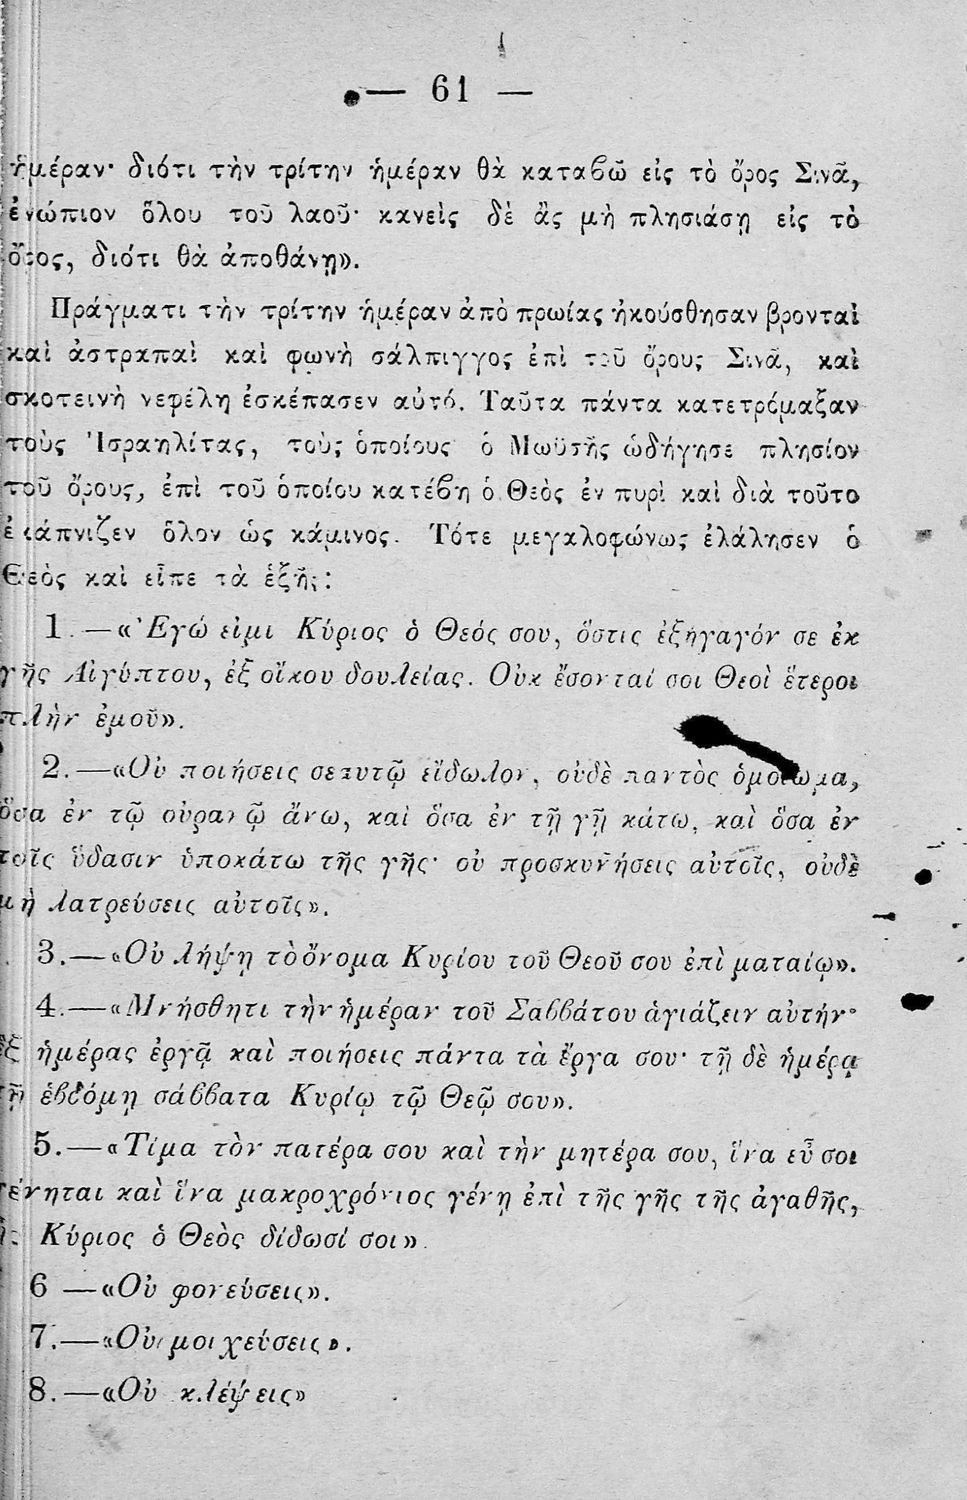 — 61 —
ἡμέραν· διότι τὴν τρίτην ἡμέραν θὰ καταβῶ εἰς τὸ ὄρος Σινᾶ,
ἐνώπιον ὅλου τοῦ λαοῦ· κανεὶς δὲ ἂς μὴ πλησιάσῃ εἰς τὸ
ὄρος, διότι θὰ ἀποθάνῃ».
Πράγματι τὴν τρίτην ἡμέραν ἀπὸ πρωίας ἠκούσθησαν βρονταὶ
καὶ ἀστραπαὶ καὶ φωνὴ σάλπιγγος ἐπὶ τοῦ ὄρους Σινᾶ, καὶ
σκοτεινὴ νεφέλη ἐσκέπασεν αὐτό. Ταῦτα πάντα κατετρόμαξαν
τοὺς Ἰσραηλίτας, τοὺς ὁποίους ὁ Μωϋσῆς ὡδήγησε πλησίον
τοῦ ὄρους, ἐπὶ τοῦ ὁποίου κατέβη ὁ Θεὸς ἐν πυρὶ καὶ διὰ τοῦτο
ἐκάπνιζεν ὅλον ὡς κάμινος. Τότε μεγαλοφώνως ἐλάλησεν ὁ
Θεὸς καὶ εἶπε τὰ ἑξῆς:
1.—«Ἐγώ εἰμι Κύριος ὁ Θεός σου, ὅστις ἐξήγαγόν σε ἐκ
γῆς Αἰγύπτου, ἐξ οἴκου δουλείας. Οὐκ ἔσονταί σοι Θεοὶ ἕτεροι
πλὴν ἐμοῦ».
2.—«Οὐ ποιήσεις σεαυτῷ εἴδωλον, οὐδὲ παντὸς ὁμοίωμα,
ὅσα ἐν τῷ οὐρανῷ ἄνω, καὶ ὅσα ἐν τῇ γῇ κάτω, καὶ ὅσα ἐν
τοῖς ὕδασιν ὑποκάτω τῆς γῆς· οὐ προσκυνήσεις αὐτοῖς, οὐδὲ
μὴ λατρεύσεις αὐτοῖς».
3.—«Οὐ λήψῃ τὸ ὄνομα Κυρίου τοῦ Θεοῦ σου ἐπὶ ματαίῳ».
4.—«Μνήσθητι τὴν ἡμέραν τοῦ Σαββάτου ἁγιάζειν αὐτήν·
ἓξ ἡμέρας ἐργᾷ καὶ ποιήσεις πάντα τὰ ἔργα σου· τῇ δὲ ἡμέρᾳ
τῇ ἑβδόμῃ σάββατα Κυρίῳ τῷ Θεῷ σου».
5.—«Τίμα τὸν πατέρα σου καὶ τὴν μητέρα σου, ἵνα εὖ σοι
γένηται καὶ ἵνα μακροχρόνιος γένῃ ἐπὶ τῆς γῆς τῆς ἀγαθῆς,
ἧς Κύριος ὁ Θεὸς δίδωσί σοι».
6 —«Οὐ φονεύσεις».
7.—«Οὐ μοιχεύσεις».
8.—«Οὐ κλέψεις»